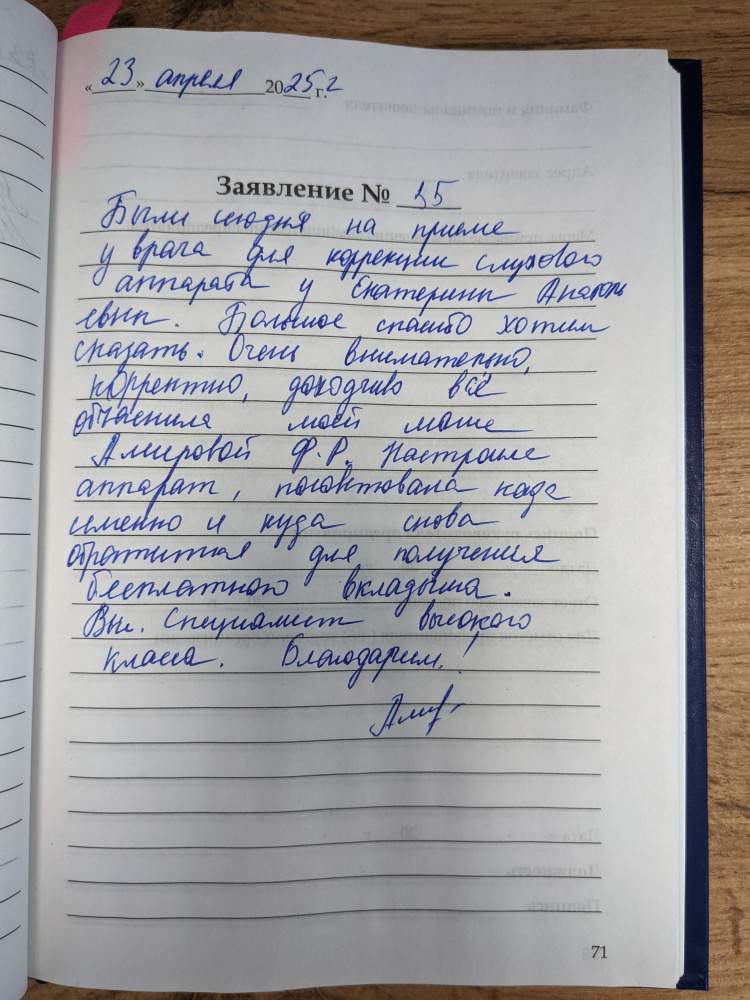 «23» апреля 2025 г. г
Заявление № 35
Были сегодня на приеме
у врача для коррекции слухового
аппарата у Екатерины Анатоль
евны. Большое спасибо хотим
сказать. Очень внимательно,
корректно, доходчиво всё
объяснила моей маме
Амировой Ф.Р. Настроила
аппарат, посоветовала когда
именно и куда снова
обратиться для получения
бесплатного вкладыша.
Вы. Специалист высокого
класса. Благодарим!
Амир
71